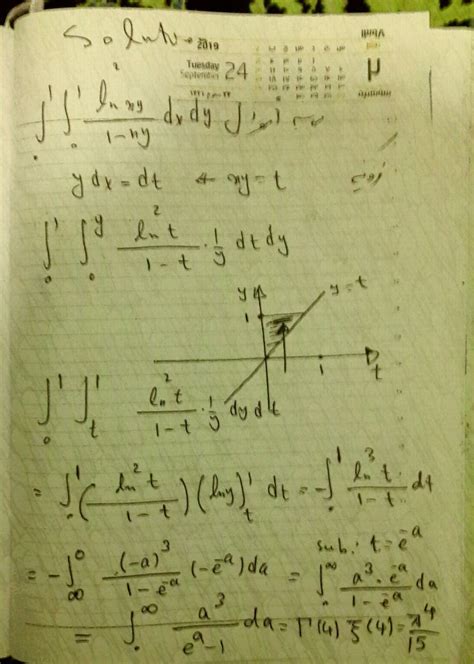 Solution
2019
Tuesday
September 24
∫₀¹ ∫₀¹ ln² xy / (1-xy) dx dy
y dx = dt ⇐ xy = t
∫₀¹ ∫₀^y ln² t / (1-t) · 1/y dt dy
y
y = t
1
1
t
∫₀¹ ∫_t^1 ln² t / (1-t) · 1/y dy dt
= ∫₀¹ (ln² t / (1-t)) (ln y)_t^1 dt = -∫₀¹ ln³ t / (1-t) dt
sub: t = e^-a
= -∫_∞^0 (-a)³ / (1-e^-a) (-e^-a) da = ∫₀^∞ a³ · e^-a / (1-e^-a) da
= ∫₀^∞ a³ / (e^a - 1) da = Γ(4) ξ(4) = π⁴/15